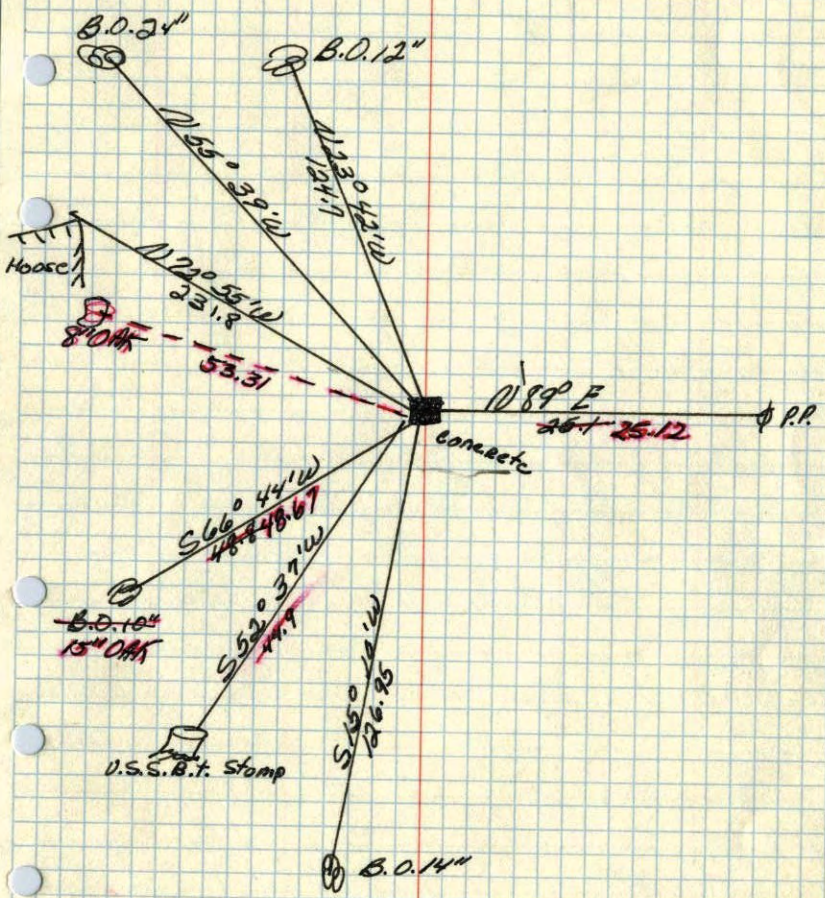 B.O. 24"
B.O. 12"
N 55° 39' W
N 23° 42' W
124.7
House
N 72° 55' W
231.8
8" OAK
53.31
N 89° E
25.1 25.12
P.P.
concrete
S 66° 44' W
48.8 48.67
B.O. 10"
15" OAK
S 52° 37' W
44.9
S 15° W
126.95
U.S.S.B.t. Stomp
B.O. 14"